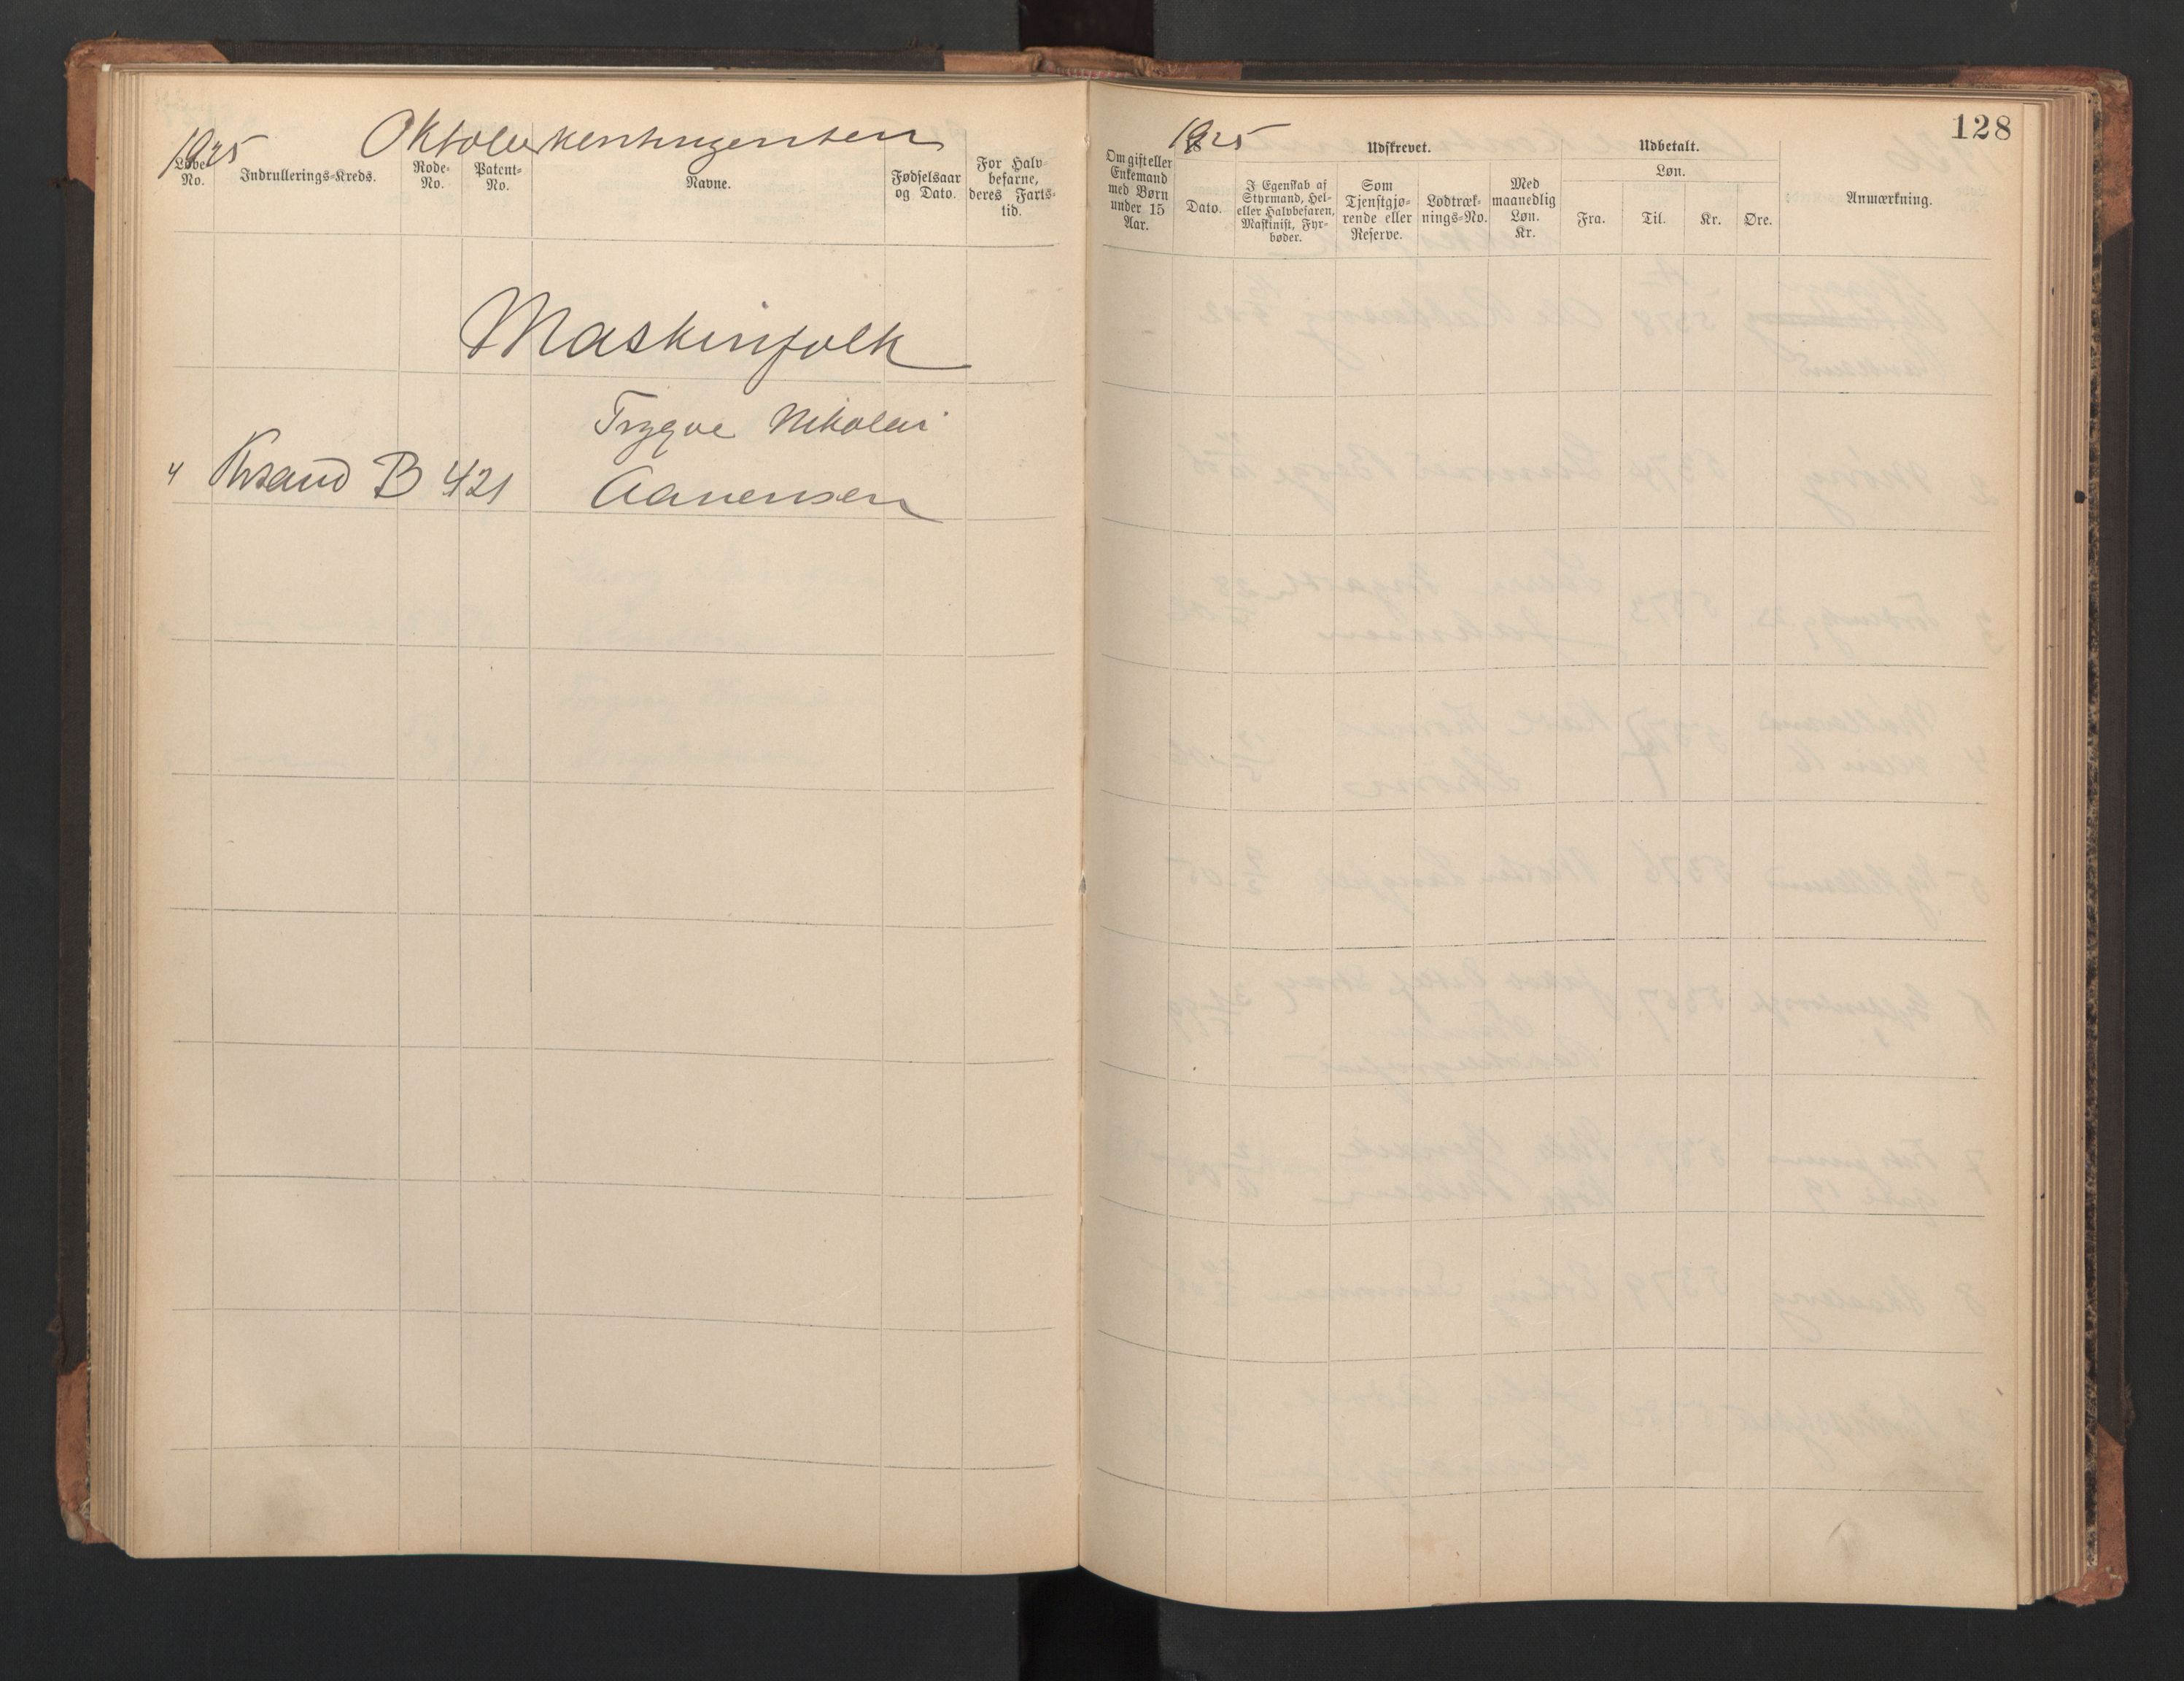 1925 Oktoberkontingenten
Løbe-No. Indrullerings-Kreds. Rode-No. Patent-No. Navne. Fødselsaar og Dato. For Halvbefarne, deres Fartstid.
Maskinfolk
Trygve Nikolai
4 Krsand B 421 Aanensen
128
1925
Om gift eller Enkemand med Børn under 15 Aar.
Udskrevet.
Dato. I Egenskab af Styrmand, Hel- eller Halvbefaren, Maskinist, Fyrbøder. Som Tjenstgjørende eller Reserve. Lodtræknings-No. Med maanedlig Løn. Kr.
Udbetalt.
Løn.
Fra. Til. Kr. Øre.
Anmærkning.